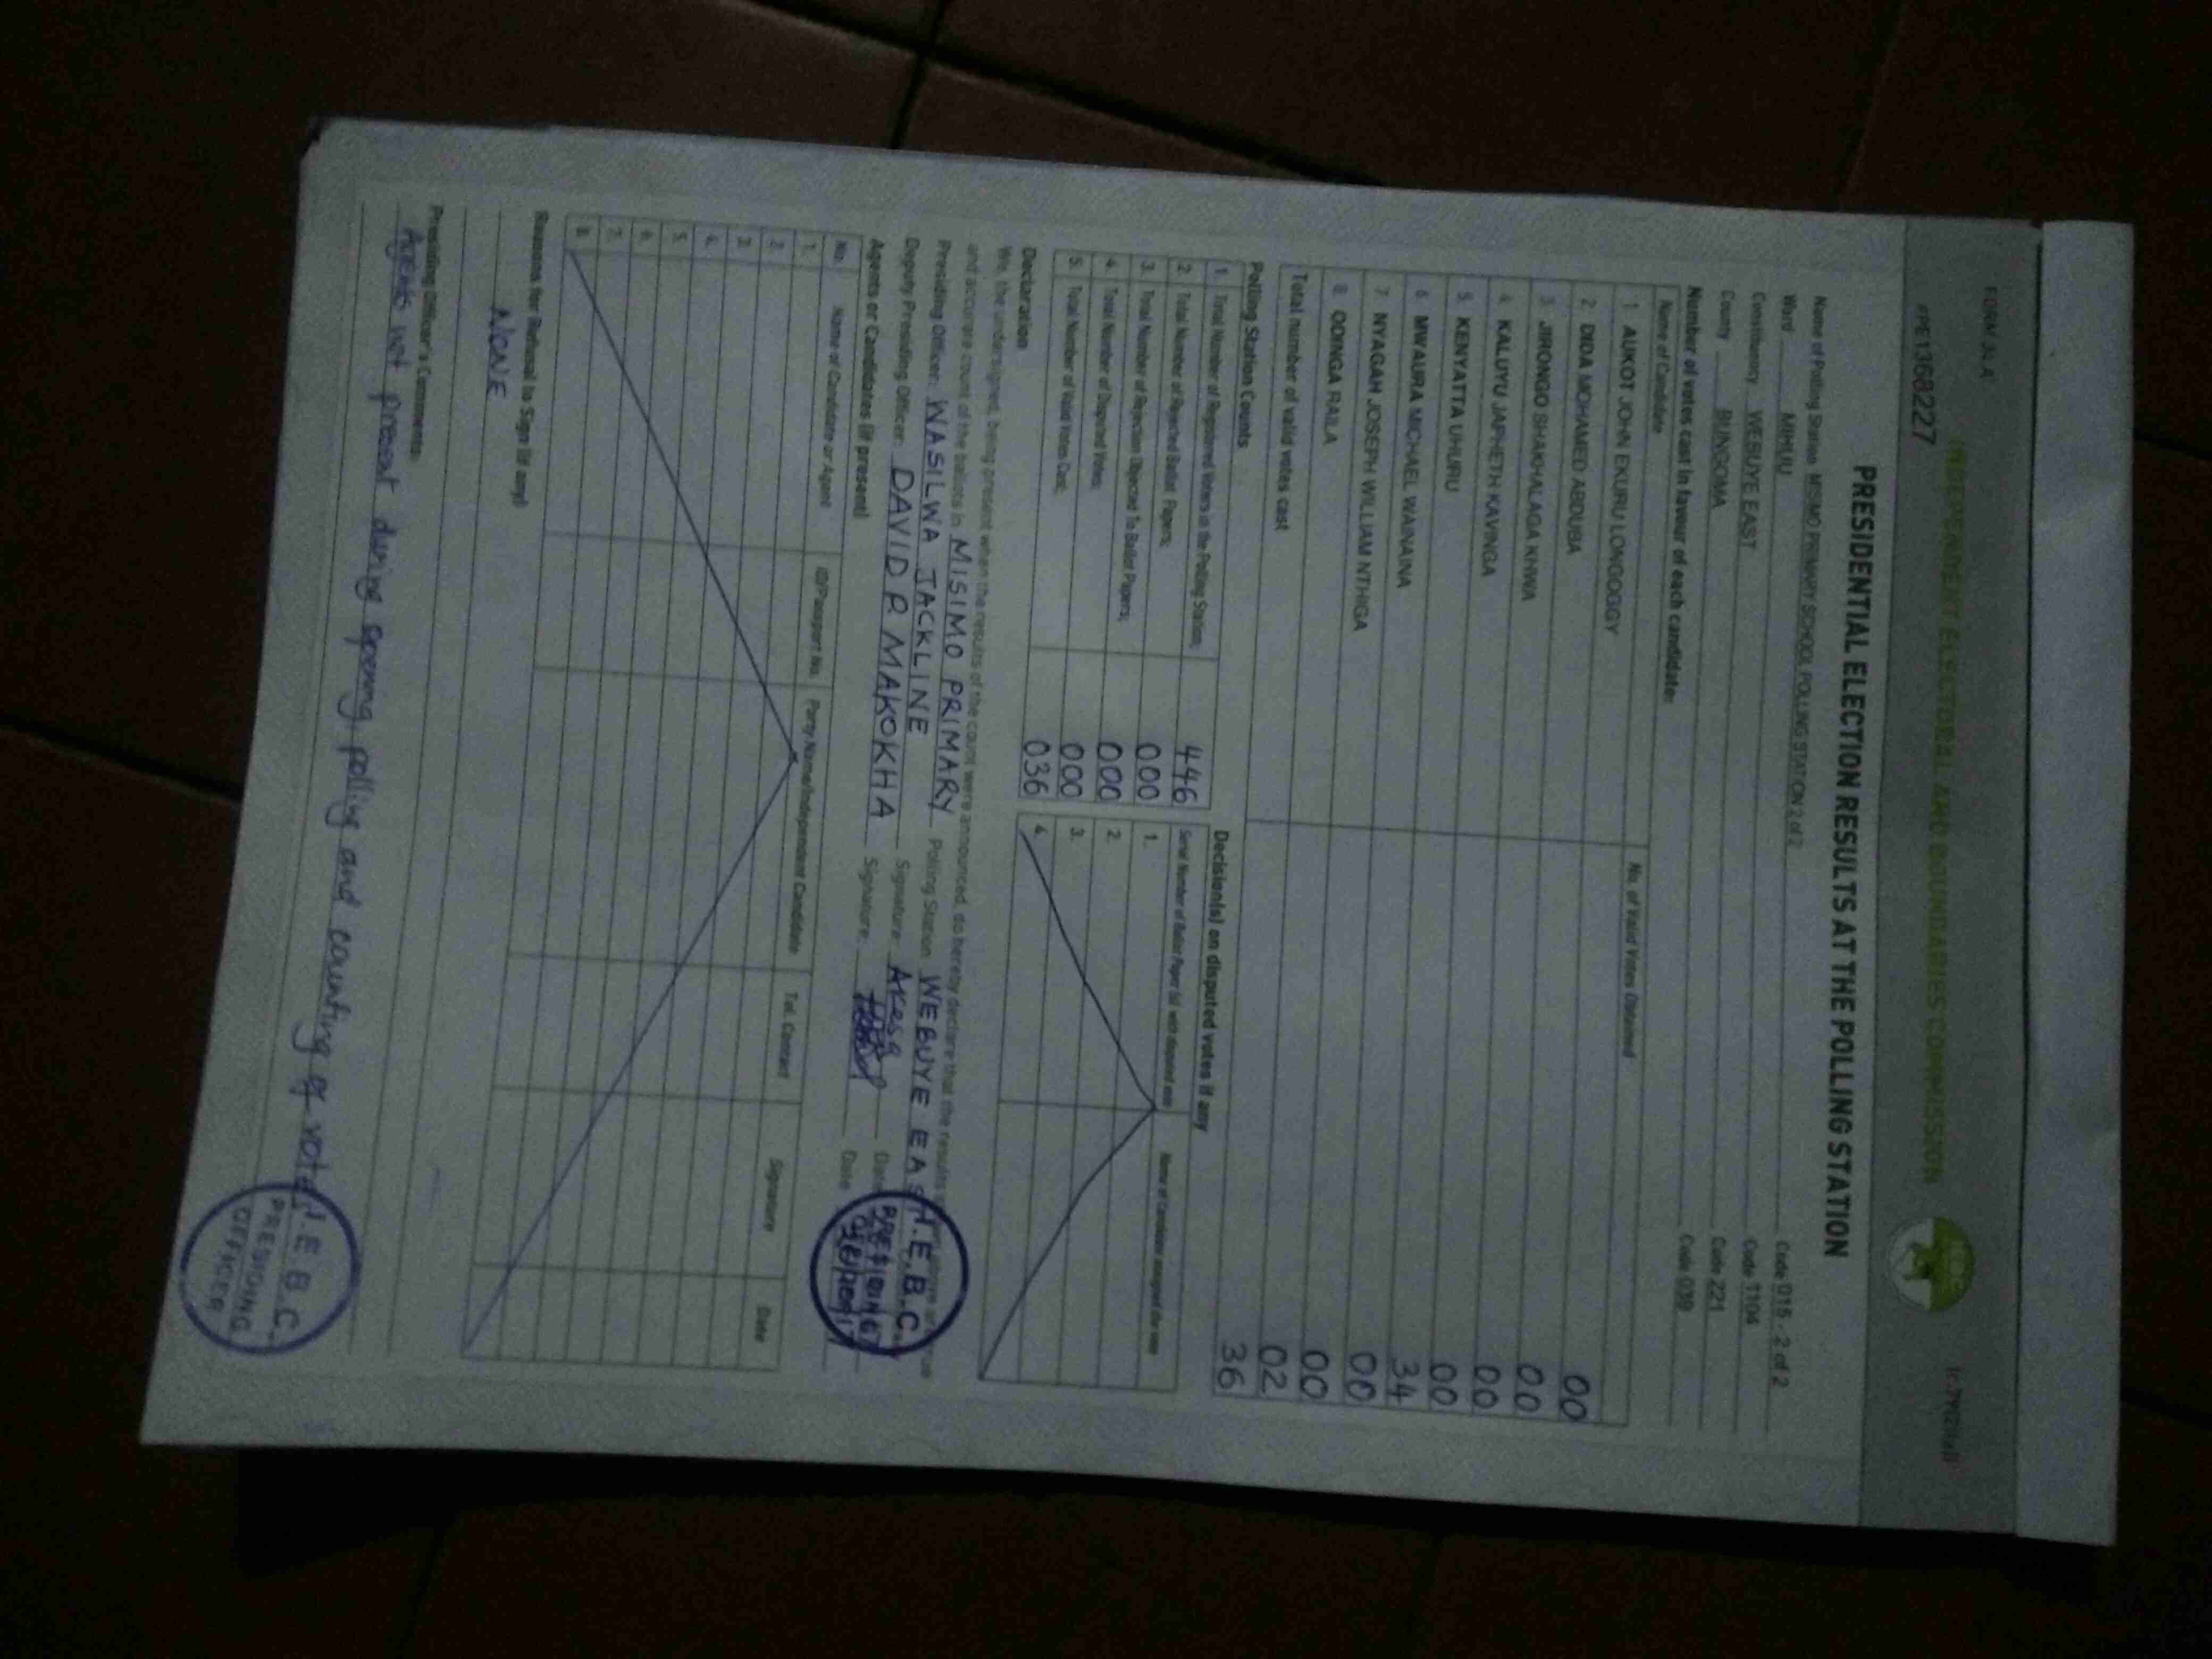 FORM 34A
INDEPENDENT ELECTORAL AND BOUNDARIES COMMISSION
PE1368227
PRESIDENTIAL ELECTION RESULTS AT THE POLLING STATION
Name of Polling Station MISIMO PRIMARY SCHOOL POLLING STATION 2 of 2 Code 015 - 2 of 2
Ward MIHUU Code 1104
Constituency WEBUYE EAST Code 221
County BUNGOMA Code 039
Number of votes cast in favour of each candidate:
Name of Candidate No. of Valid Votes Obtained
1 AUKOT JOHN EKURU LONGOGGY 00
2 DIDA MOHAMED ABDUBA 00
3 JIRONGO SHAKHALAGA KHWA 00
4 KALUYU JAPHETH KAVINGA 00
5 KENYATTA UHURU 34
6 MWAURA MICHAEL WAINAINA 00
7 NYAGAH JOSEPH WILLIAM NTHIGA 00
8 ODINGA RAILA 02
Total number of valid votes cast 36
Polling Station Counts
1. Total Number of Registered Voters in the Polling Station; 446
2. Total Number of Rejected Ballot Papers; 000
3. Total Number of Rejection Objected To Ballot Papers; 000
4. Total Number of Disputed Votes; 000
5. Total Number of Valid Votes Cast; 036
Decision(s) on disputed votes if any
Serial Number of Ballot Paper (s) with disputed vote Name of Candidate assigned the vote
1.
2.
3.
4.
Declaration
We, the undersigned, being present when the results of the count were announced, do hereby declare that the results
and accurate count of the ballots in MISIMO PRIMARY Polling Station WEBUYE EAST
Presiding Officer: WASILWA JACKLINE Signature: Date
Deputy Presiding Officer: DAVID P. MAKOKHA Signature: Date
I.E.B.C.
PRESIDING
Agents or Candidates (if present)
No. Name of Candidate or Agent ID/Passport No. Party Name/Independent Candidate Tel. Contact Signature Date
1.
2.
3.
4.
5.
6.
7.
8.
Reasons for Refusal to Sign (if any)
NONE
Presiding Officer's Comments:
Agents not present during opening, polling and counting of votes
I.E.B.C.
PRESIDING
OFFICER